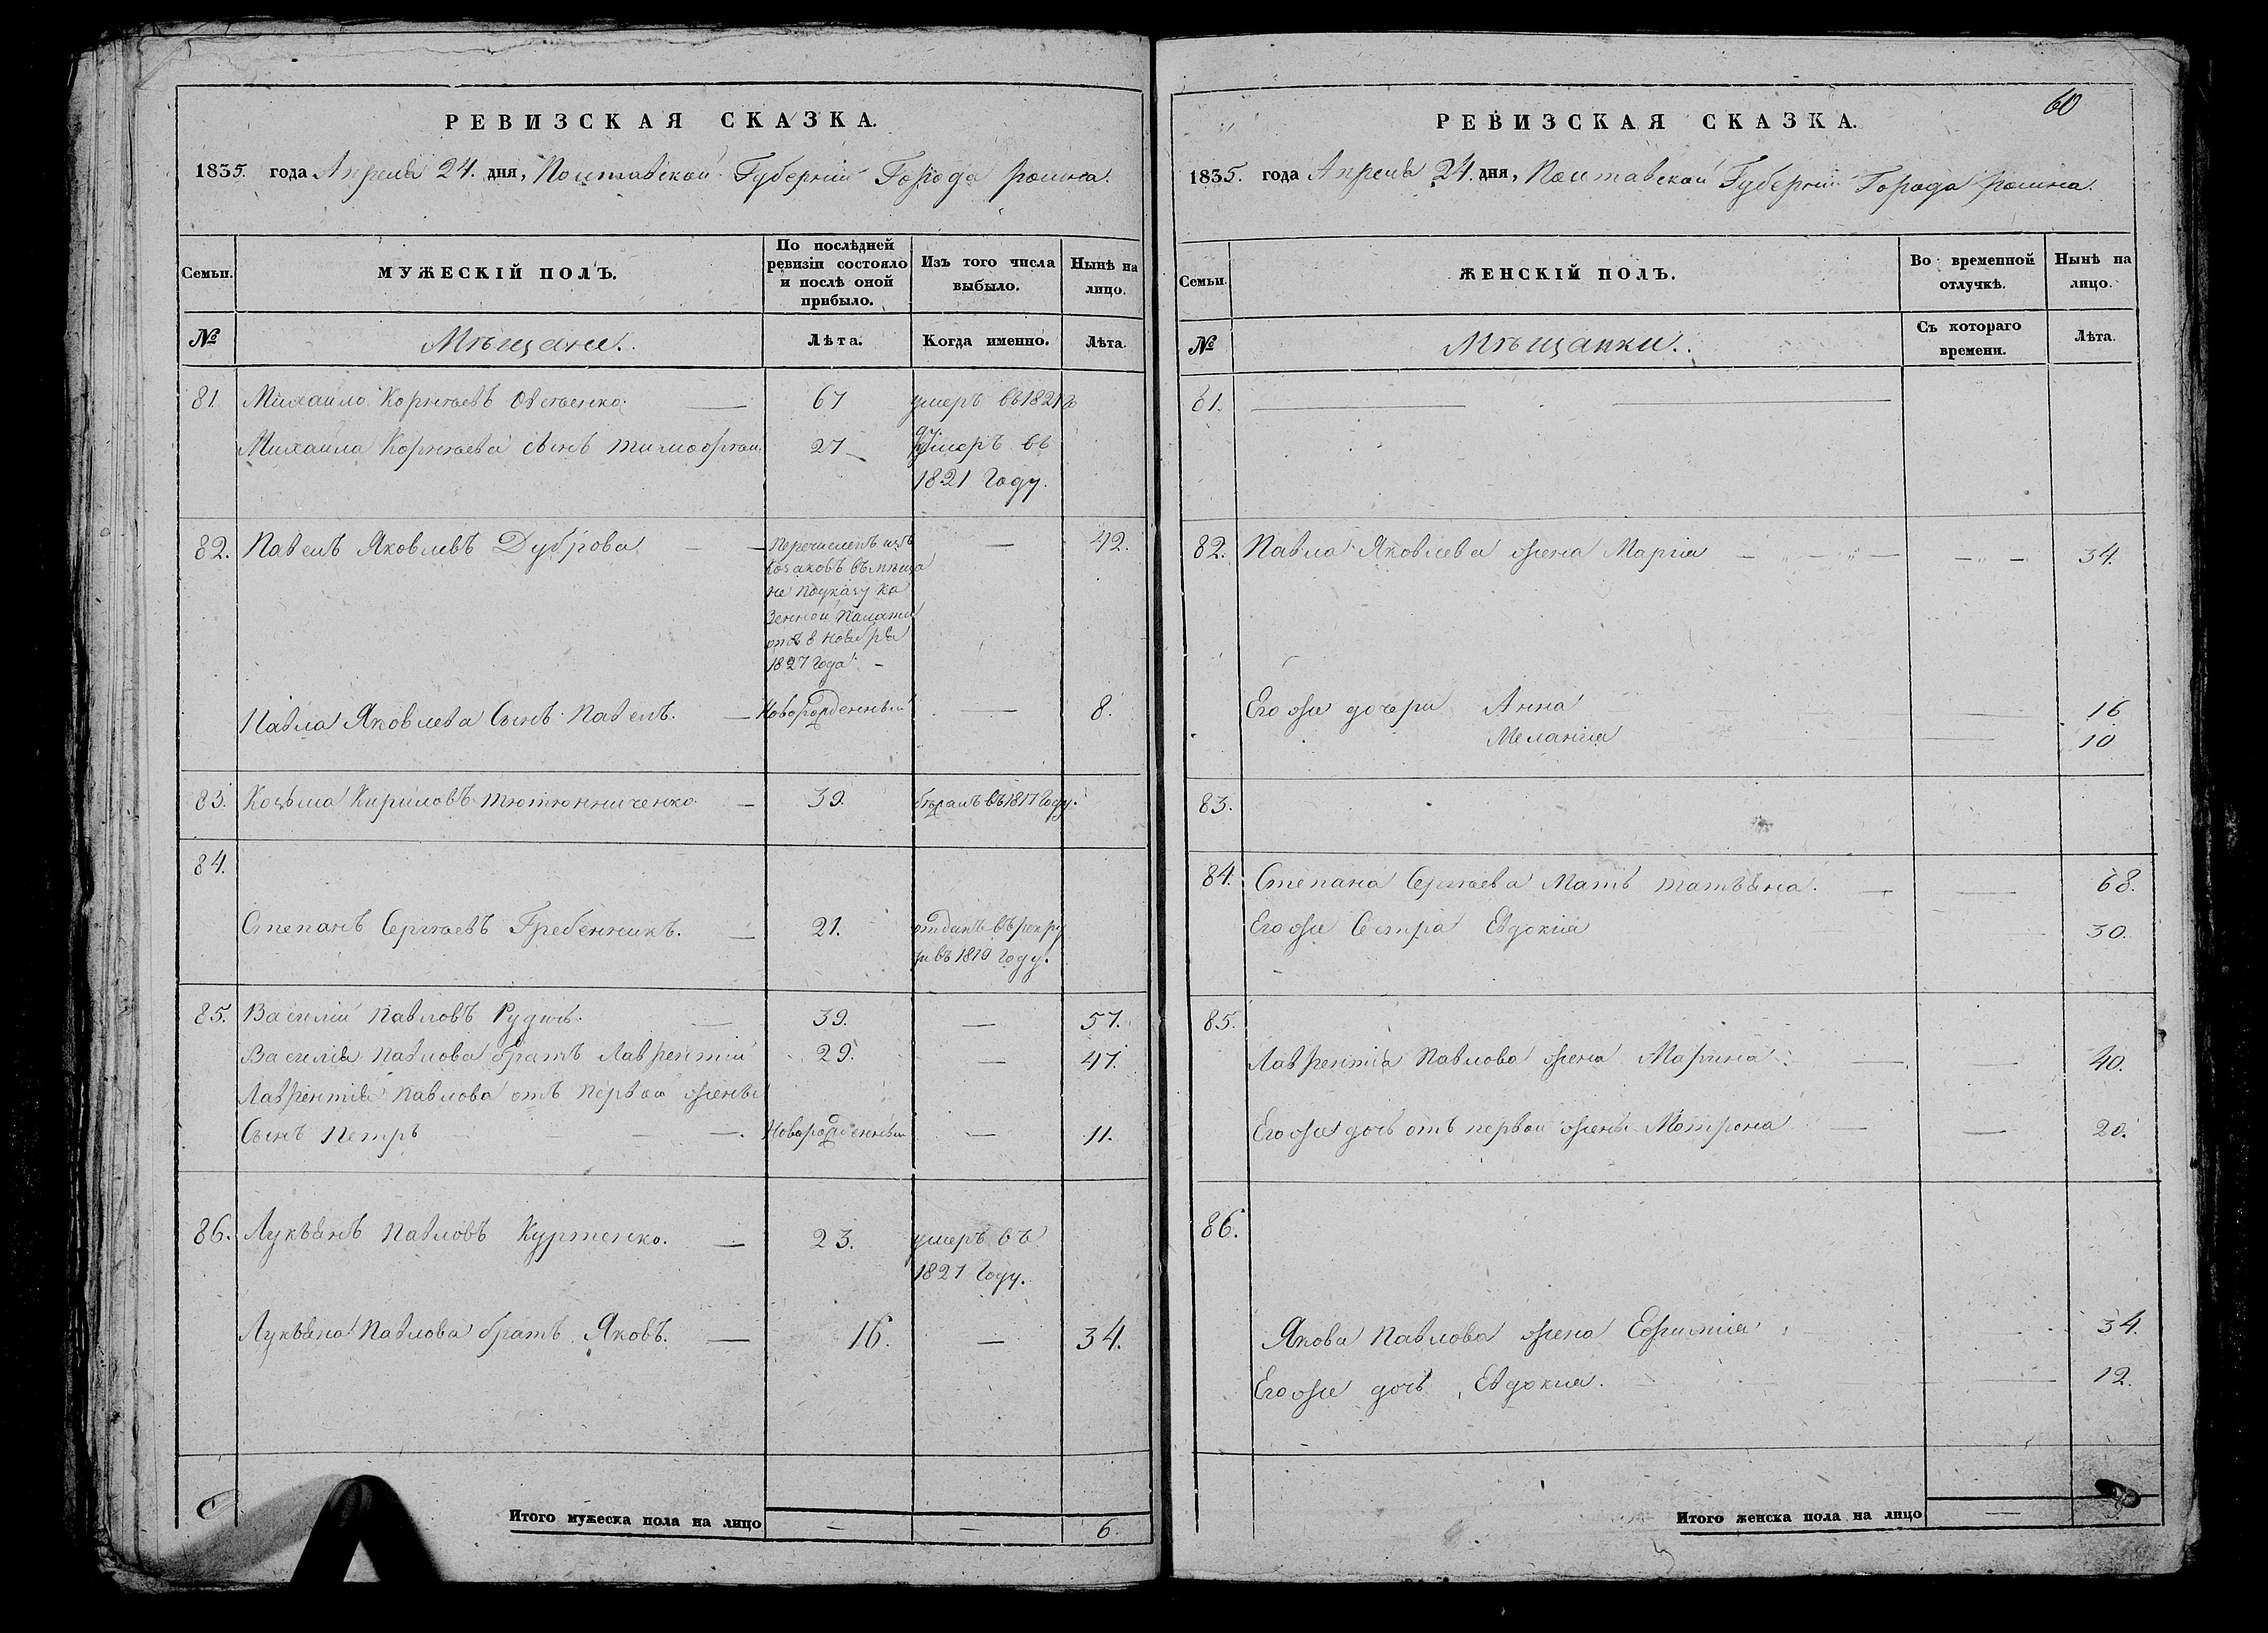 РЕВИЗСКАЯ СКАЗКА.
1835. года Апреля 24. дня, Полтавской Губернии Города ромна.
Семьи.
МУЖЕСКІЙ ПОЛЪ.
По послѣдней
ревизіи состояло
и послѣ оной
прибыло.
Изъ того числа
выбыло.
Нынѣ на
лицо.
№
Мѣщане.
Лѣта.
Когда именно.
Лѣта.
81 Михайло Корнѣевъ 67 умеръ въ 1821
Михайла Корнѣева сынъ тимофѣй 27 умеръ въ
1821 году.
82. Павелъ Яковлевъ Дуброва — 42.
Перечисленъ изъ
козаковъ въ мѣща
не поуказу ка
зенной палаты
отъ 8 ноября
1827 года
Павла Яковлева Сынъ Павелъ. — Новорожденный — 8.
83. Козьма Кириловъ тютюнниченко. — 39. въ 1817 году.
84.
Степанъ Сергѣевъ Гребенникъ. — 21. отданъ въ рекру
ты въ 1819 году.
85. Василій Павловъ Рудичь. — 39. — 57.
Василія Павлова братъ Лаврентій 29. — 47.
Лаврентія Павлова отъ первой жены
Сынъ Петръ — Новорожденный — 11.
86. Лукьянъ Павловъ Куртенко. — 23. умеръ въ
1827 году.
Лукьяна Павлова братъ Яковъ. — 16. — 34.
Итого мужеска пола на лицо — — 6.
60
РЕВИЗСКАЯ СКАЗКА.
1835. года Апреля 24. дня, Полтавской Губернии Города ромна.
Семьи.
ЖЕНСКІЙ ПОЛЪ.
Во временной
отлучкѣ.
Нынѣ на
лицо.
№
Мѣщанки.
Съ котораго
времени.
Лѣта.
81.
82. Павла Яковлева жена Марія — — 34.
Его же дочери Анна — 16
Меланія — 10
83.
84. Степана Сергѣева Мать татьяна. — — 68.
Его же Сестра Евдокія 30.
85.
Лаврентія Павлова жена Марина — — 40.
Его же дочь отъ первой жены Мотрона — — 20.
86.
Якова Павлова жена Евфимія 34.
Его же дочь Евдокия. — 12.
Итого женска пола на лицо —